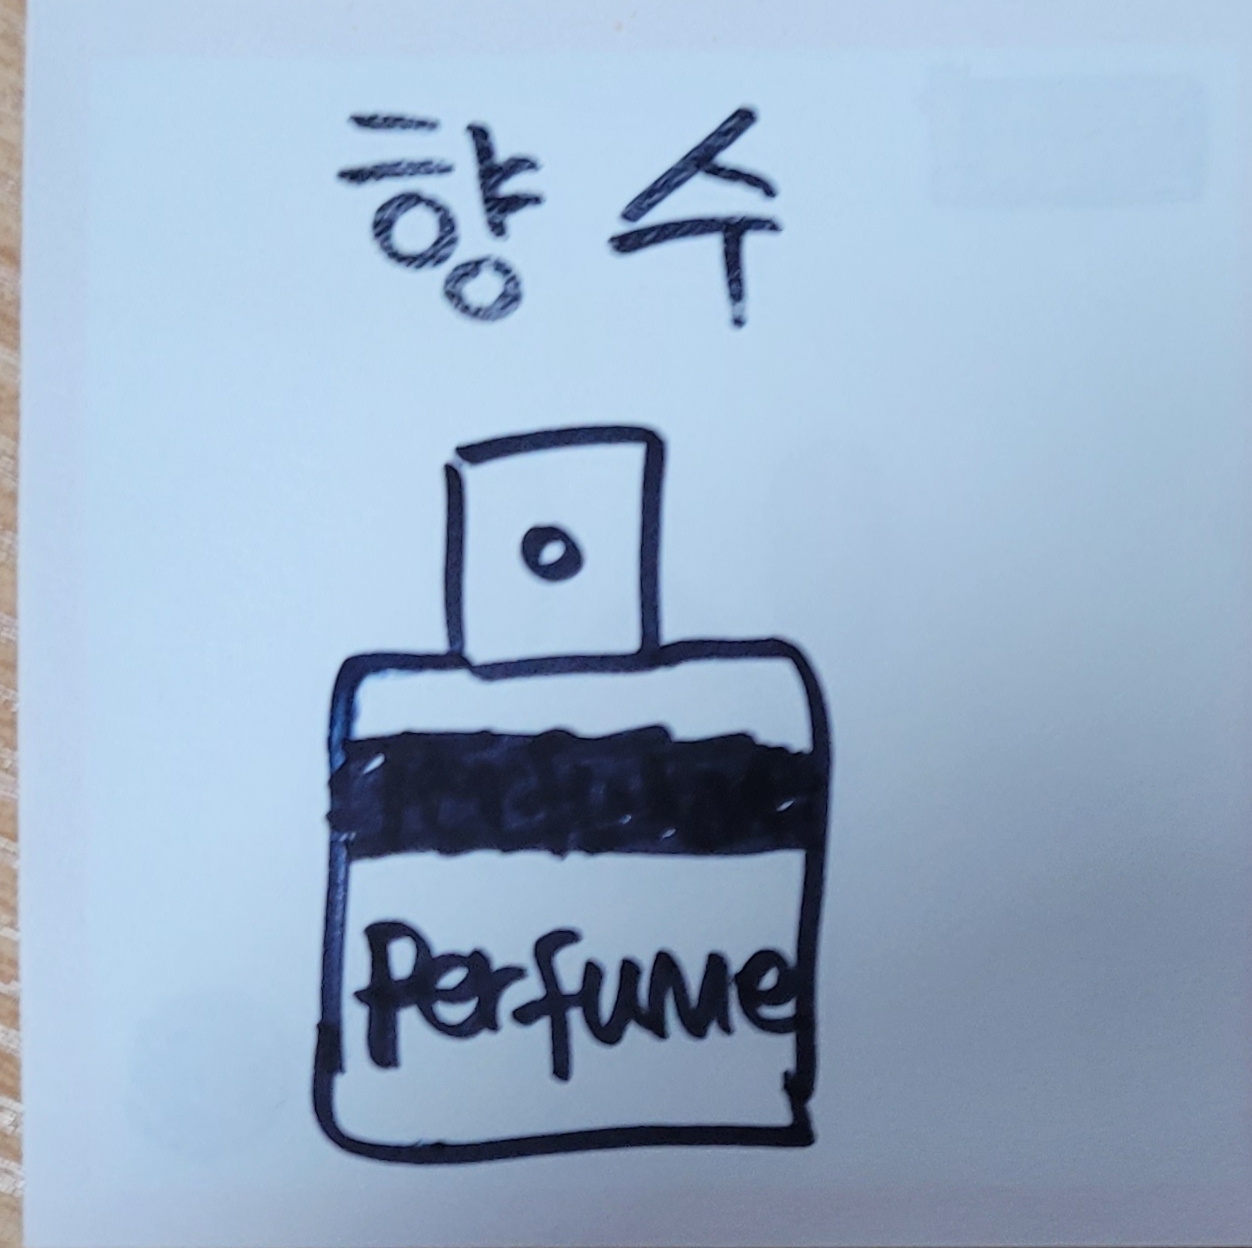 향수
Perfume